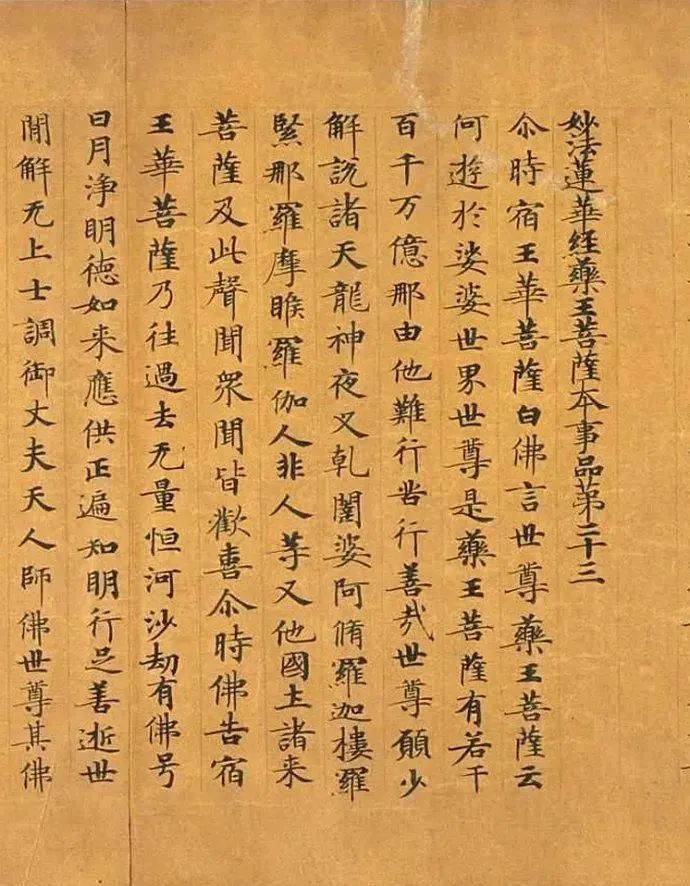 妙法蓮華経藥王菩薩本事品第二十三
尒時宿王華菩薩白佛言世尊藥王菩薩云
何遊於娑婆世界世尊是藥王菩薩有若干
百千万億那由他難行苦行善㢤世尊願少
解説諸天龍神夜叉乹闥婆阿脩羅迦樓羅
緊那羅摩睺羅伽人非人等又他國土諸来
菩薩及此聲聞衆聞皆歡喜尒時佛告宿
王華菩薩乃往過去无量恒河沙劫有佛号
日月淨明徳如来應供正遍知明行足善逝世
間解无上士調御丈夫天人師佛世尊其佛